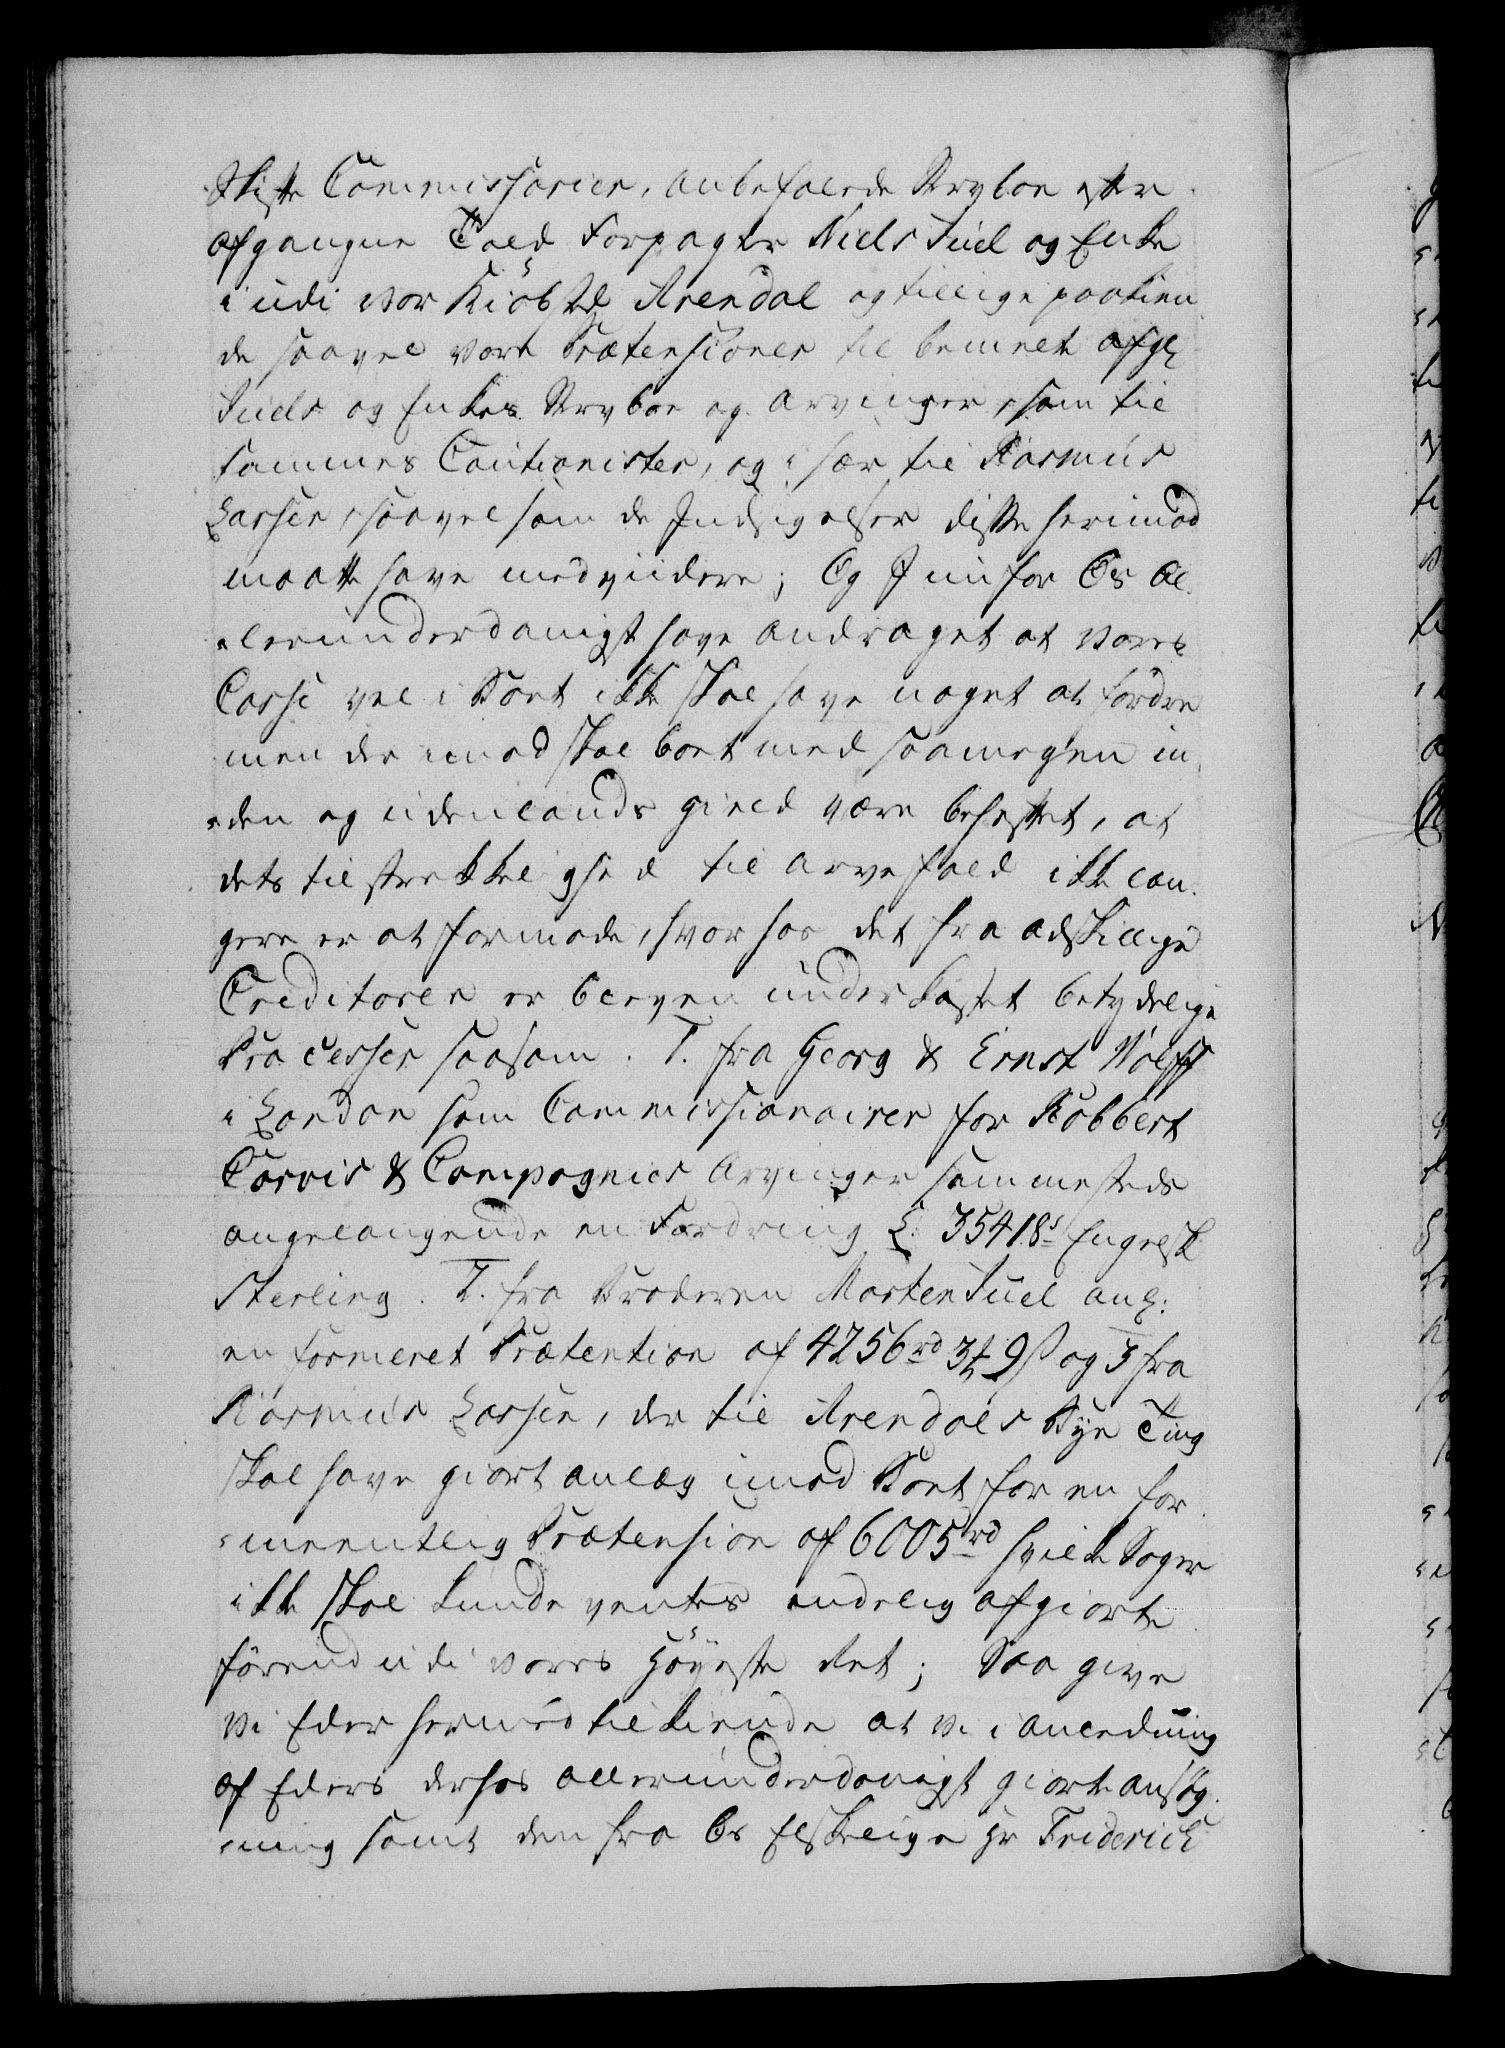 Skifte Commissarier, anbefalede Stervboe efter
afgangne Told Forpagter Niels Juel og Enke
i udi vor Kiöbsted Arendal og tillige paakien
de saavel vore Prætensioner til bemelte afg:
Juels og Enkes Stervboe og Arvinger, som til
sammes Cautionister, og i sær til Rasmus
Lassen, saavel som de Indsigelser disse herimod
maatte have med viidere; Og I nu for Os Al-
lerunderdanigst have andraget at vores
Casse vel i Boet ikke skal have noget at fordre
men derimod skal boet med saamegen in-
den og udenlands gield være behæftet, at
dets tilstrekkelighed til arvefald ikke læn-
gere er at formode, hvorhos det fra adskillige
Creditorer er bleven underkastet betydelige
Processer saasom. 1. fra Georg & Ernst Wolff
i London som Commissionairer for Robbert
Tarvis & Compagnies Arvinger sammesteds
angelangende en Fordring £ 35418s Engelsk
Sterling. 2. fra Broderen Morten Juel ang:
en formeret Prætention af 4256rd 3 9s og 3 fra
Rasmus Lassen, der til Arendals Bye Ting
skal have giort anlæg imod Boet for en for-
meentlig Prætension af 6005rd hvilke Sager
ikke skal kunde ventes endelig afgiorte
förend udi vores Höyeste Ret; Saa give
Vi Eder hermed tilkiende at Vi i anledning
af Eders derhos allerunderdanigst giorte ansög-
ning samt den fra Os Elskelige Hr Friderich